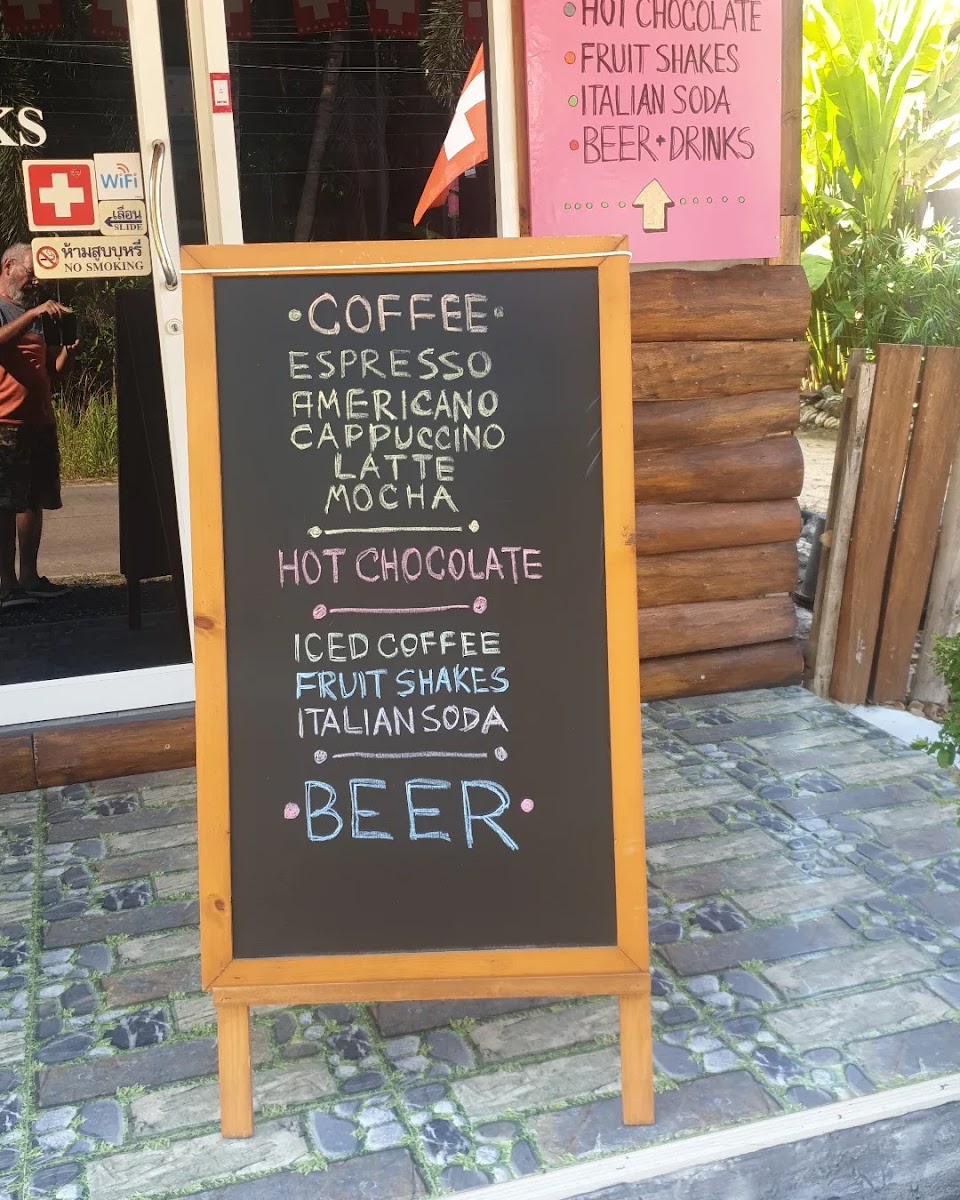 KS
WiFi
เลื่อน
SLIDE
ห้ามสูบบุหรี่
NO SMOKING
HOT CHOCOLATE
FRUIT SHAKES
ITALIAN SODA
BEER + DRINKS
COFFEE
ESPRESSO
AMERICANO
CAPPUCCINO
LATTE
MOCHA
HOT CHOCOLATE
ICED COFFEE
FRUIT SHAKES
ITALIAN SODA
BEER